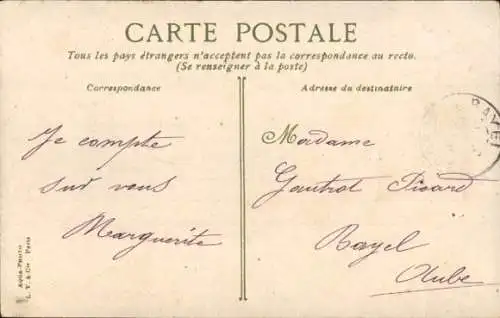 CARTE POSTALE
Tous les pays étrangers n'acceptent pas la correspondance au recto.
(Se renseigner à la poste)
Correspondance
Je compte
sur vous
Marguerite
Adresse du destinataire
Madame
Gautrot Picard
Bayel
Aube
BAYEL
AQUA-PHOTO
L. V. & Cie Paris